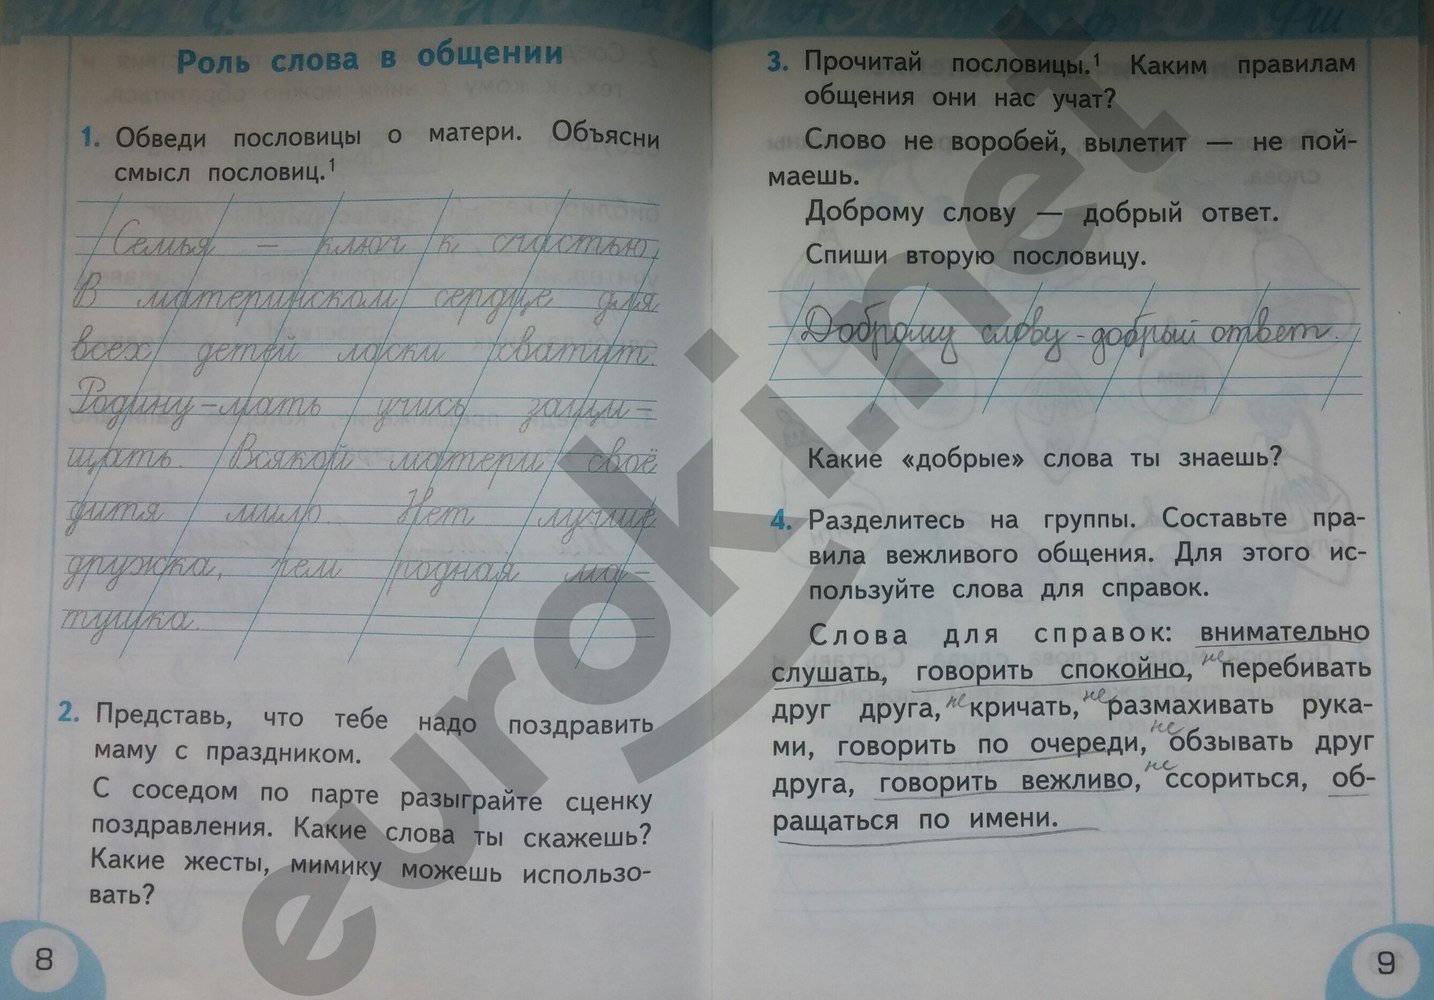 Роль слова в общении
1. Обведи пословицы о матери. Объясни
смысл пословиц.¹
Семья — ключ к счастью.
В материнском сердце для
всех детей ласки хватит.
Родину-мать учись защи-
щать. Всякой матери своё
дитя мило. Нет лучше
дружка, чем родная ма-
тушка.
2. Представь, что тебе надо поздравить
маму с праздником.
С соседом по парте разыграйте сценку
поздравления. Какие слова ты скажешь?
Какие жесты, мимику можешь использо-
вать?
8
3. Прочитай пословицы.¹ Каким правилам
общения они нас учат?
Слово не воробей, вылетит — не пой-
маешь.
Доброму слову — добрый ответ.
Спиши вторую пословицу.
Доброму слову - добрый ответ.
Какие «добрые» слова ты знаешь?
4. Разделитесь на группы. Составьте пра-
вила вежливого общения. Для этого ис-
пользуйте слова для справок.
Слова для справок: внимательно
слушать, говорить спокойно, не перебивать
друг друга, не кричать, не размахивать рука-
ми, говорить по очереди, не обзывать друг
друга, говорить вежливо, не ссориться, об-
ращаться по имени.
9
euroki.net